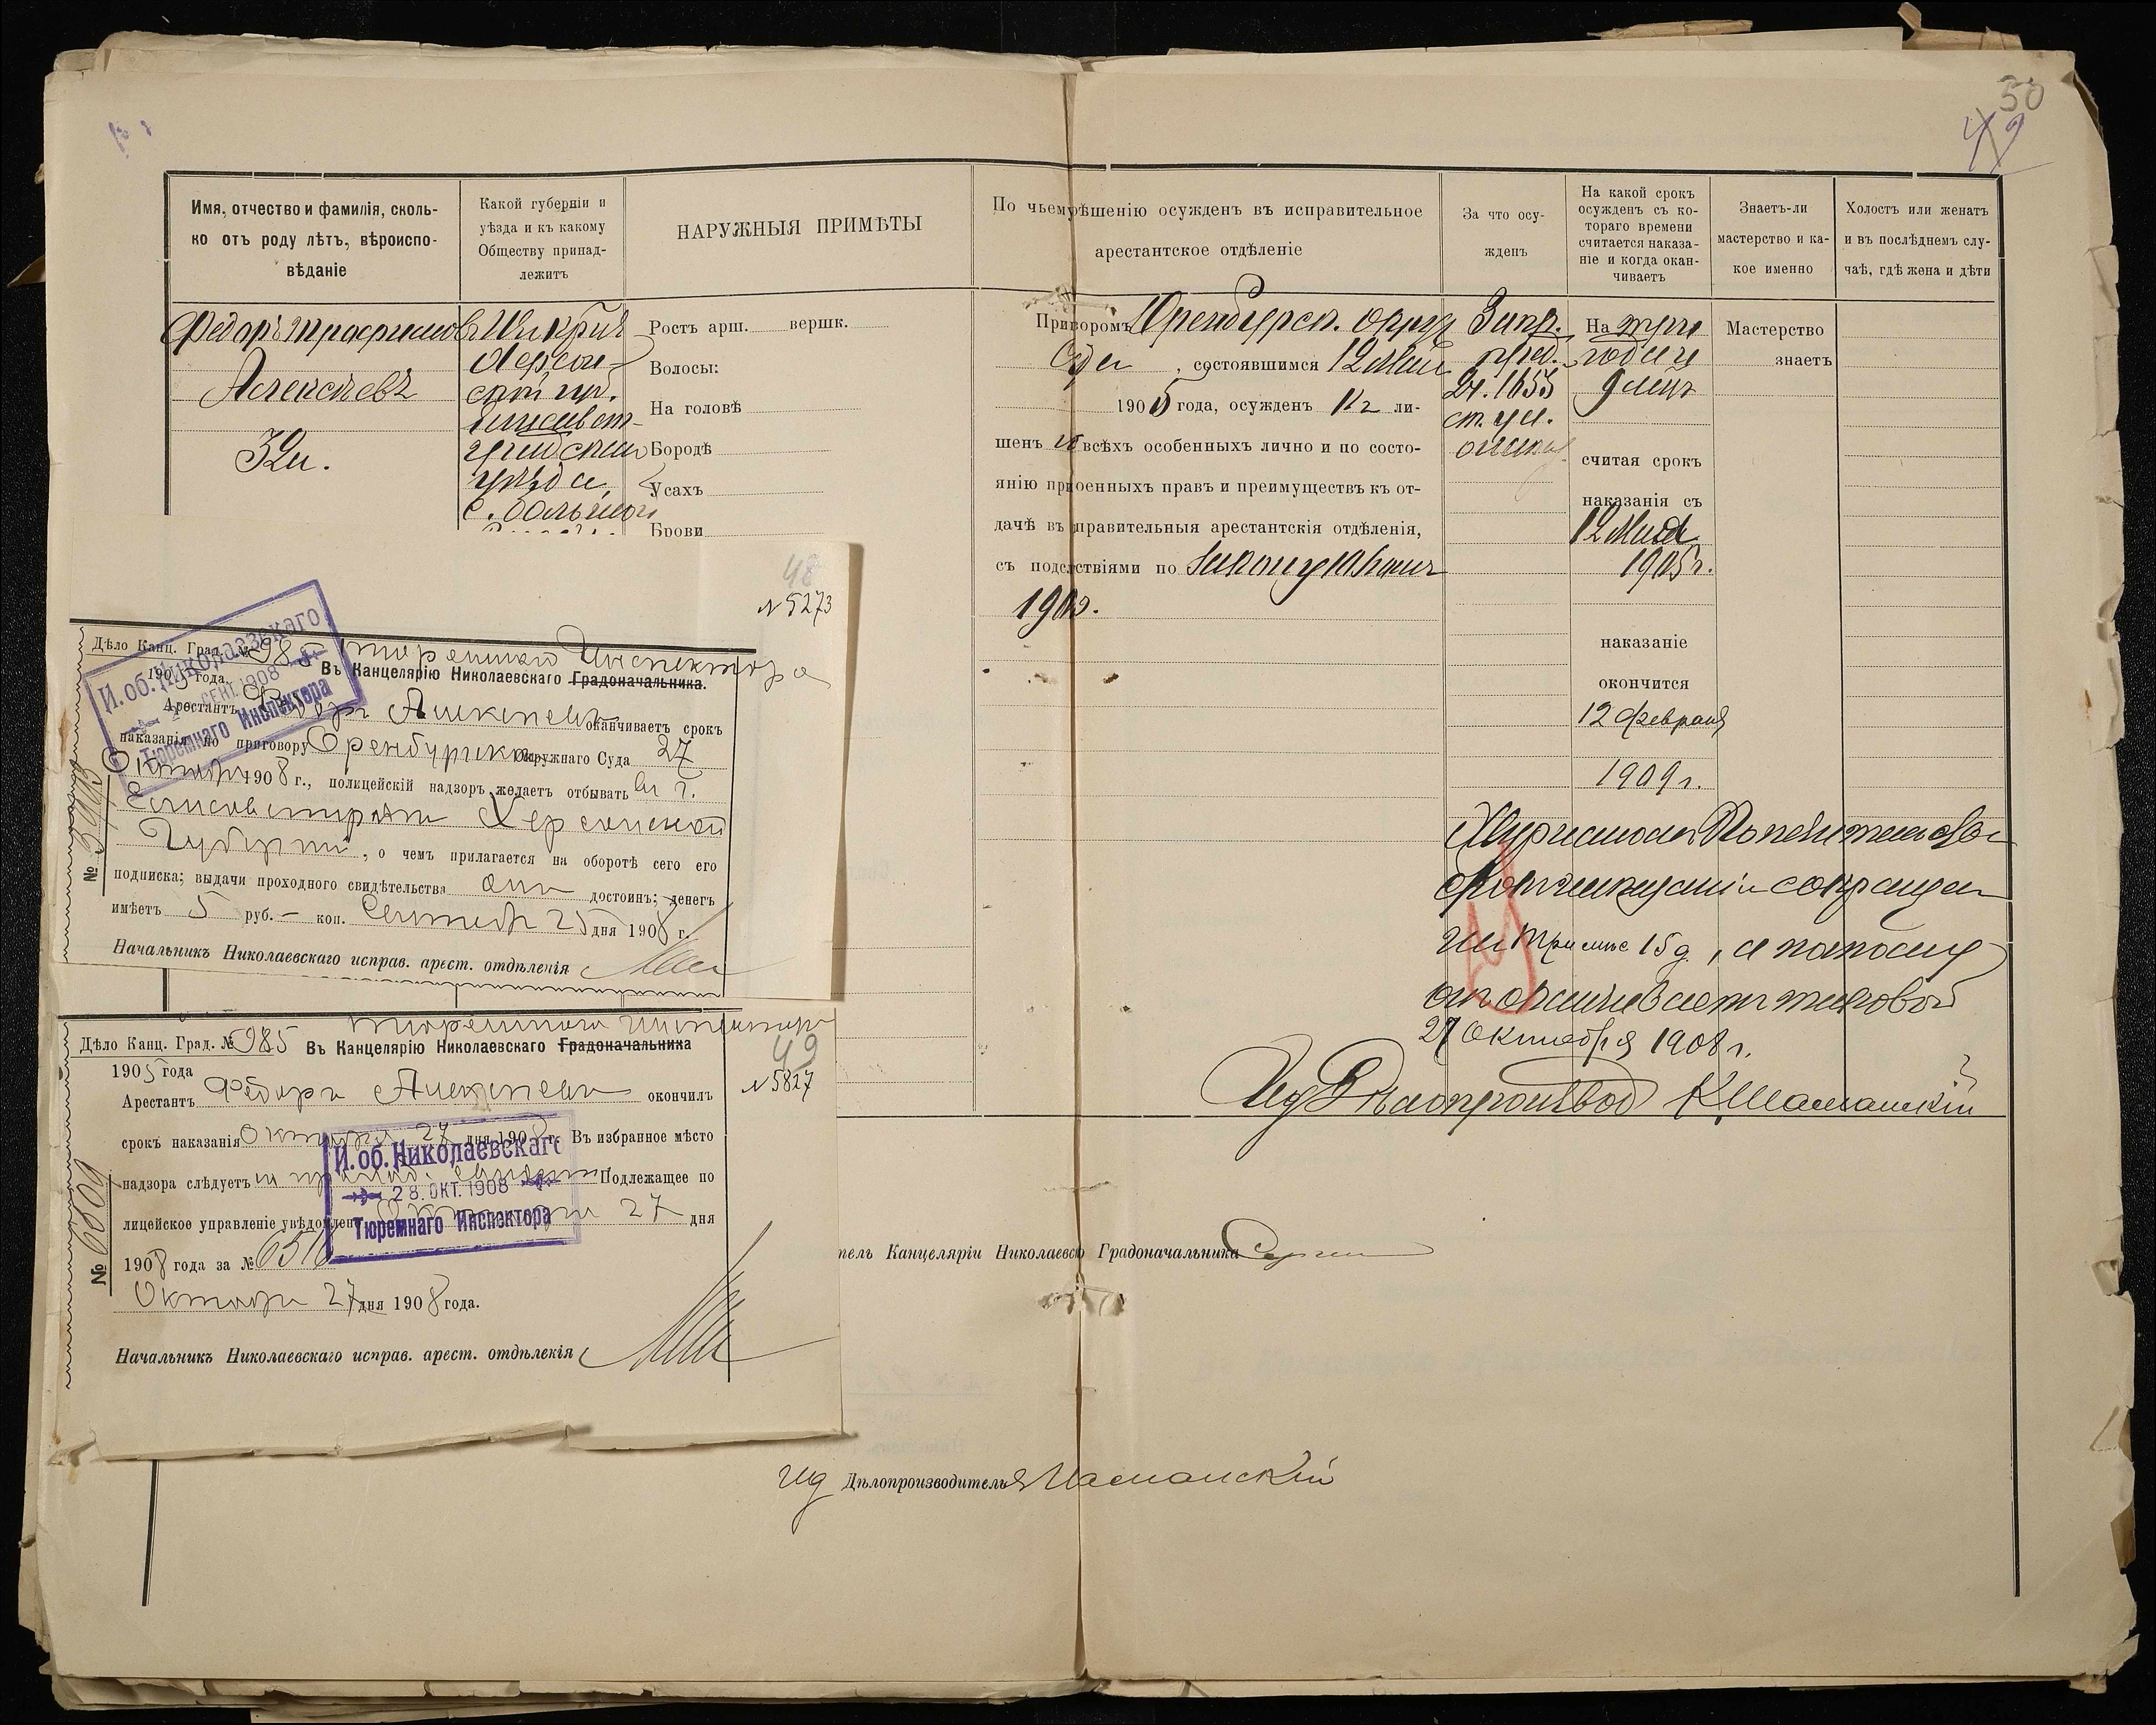 50
49
Имя, отчество и фамилія, сколь-
ко отъ роду лѣтъ, вѣроиспо-
вѣданіе
Какой губерніи и
уѣзда и къ какому
Обществу принад-
лежитъ
НАРУЖНЫЯ ПРИМѢТЫ
По чьему рѣшенію осужденъ въ исправительное
арестантское отдѣленіе
За что осу-
жденъ
На какой срокъ
осужденъ съ ко-
тораго времени
считается наказа-
ніе и когда окан-
чиваетъ
Знаетъ-ли
мастерство и ка-
кое именно
Холостъ или женатъ
и въ послѣднемъ слу-
чаѣ, гдѣ жена и дѣти
Федоръ Трофимовъ
Алексѣевъ
32 л.
Херсон-
ской губ.
Елисавет-
градскаго
уѣзда,
с. Большой
Ростъ арш. вершк.
Волосы:
На головѣ
Бородѣ
Усахъ
Брови
Приговоромъ Оренбургск. окруж.
Суда, состоявшимся 12 Мая
1905 года, осужденъ къ ли-
шенію всѣхъ особенныхъ лично и по состо-
янію присвоенныхъ правъ и преимуществъ къ от-
дачѣ въ исправительныя арестантскія отдѣленія,
съ послѣдствіями по закону 10 Іюня
1900.
2 ч. 1655
ст. ул.
о наказ.
На три
года и
9 мсцъ
считая срокъ
наказанія съ
12 Мая
1905 г.
наказаніе
окончится
12 февраля
1909 г.
Мастерство
знаетъ
Журналомъ Попечительства
о сокращен
на три мсц 15 д., а потому
оканчиваетъ таковой
27 Октября 1908 г.
Ид Дѣлопроизвод КШаманскій
48
№ 5273
Дѣло Канц. Град. № 985
1905 года.
Тюремнаго Инспектора
Въ Канцелярію Николаевскаго Градоначальника.
И. об. Николаевскаго
СЕНТ. 1908
Тюремнаго Инспектора
Арестантъ Федоръ Алексѣевъ оканчиваетъ срокъ
наказанія по приговору Оренбургскаго Окружнаго Суда 27
Октября 1908 г., полицейскій надзоръ желаетъ отбывать въ г.
Елисаветградѣ Херсонской
Губерніи, о чемъ прилагается на оборотѣ сего его
подписка; выдачи проходного свидѣтельства онъ достоинъ; денегъ
имѣетъ 5 руб. — коп. Сентября 25 дня 1908 г.
Начальникъ Николаевскаго исправ. арест. отдѣленія
№
Дѣло Канц. Град. № 985
1905 года
Тюремнаго Инспектора
Въ Канцелярію Николаевскаго Градоначальника
49
№ 5827
Арестантъ Федоръ Алексѣевъ окончилъ
срокъ наказанія Октября 27 дня 1908 г. Въ избранное мѣсто
надзора слѣдуетъ Подлежащее по
лицейское управленіе увѣдомлено Октября 27 дня
1908 года за № 6516
Октября 27 дня 1908 года.
И. об. Николаевскаго
28. ОКТ. 1908
Тюремнаго Инспектора
Начальникъ Николаевскаго исправ. арест. отдѣленія
№
тель Канцеляріи Николаевск Градоначальника
Ид Дѣлопроизводитель Шаманскій